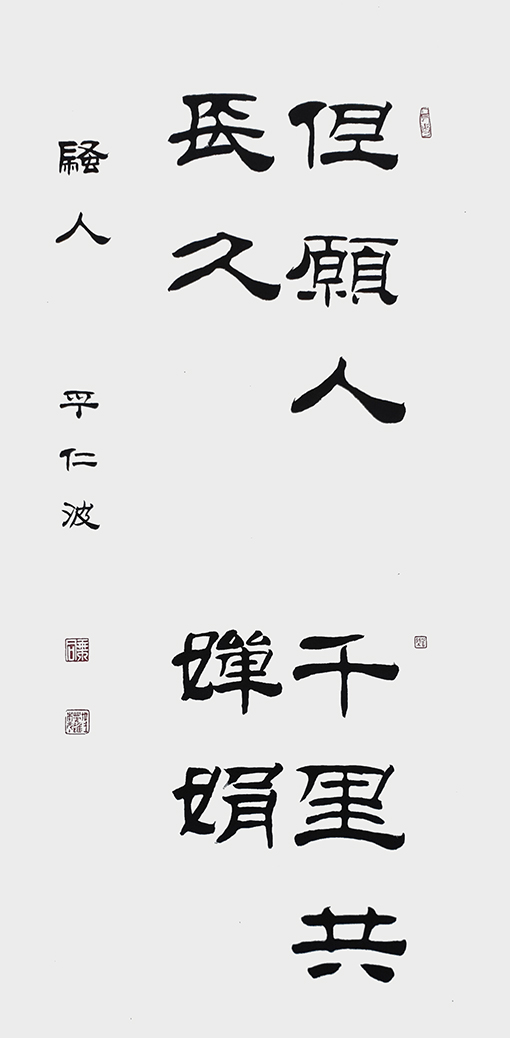 但願人
長久
千里共
嬋娟
騷人
平仁波